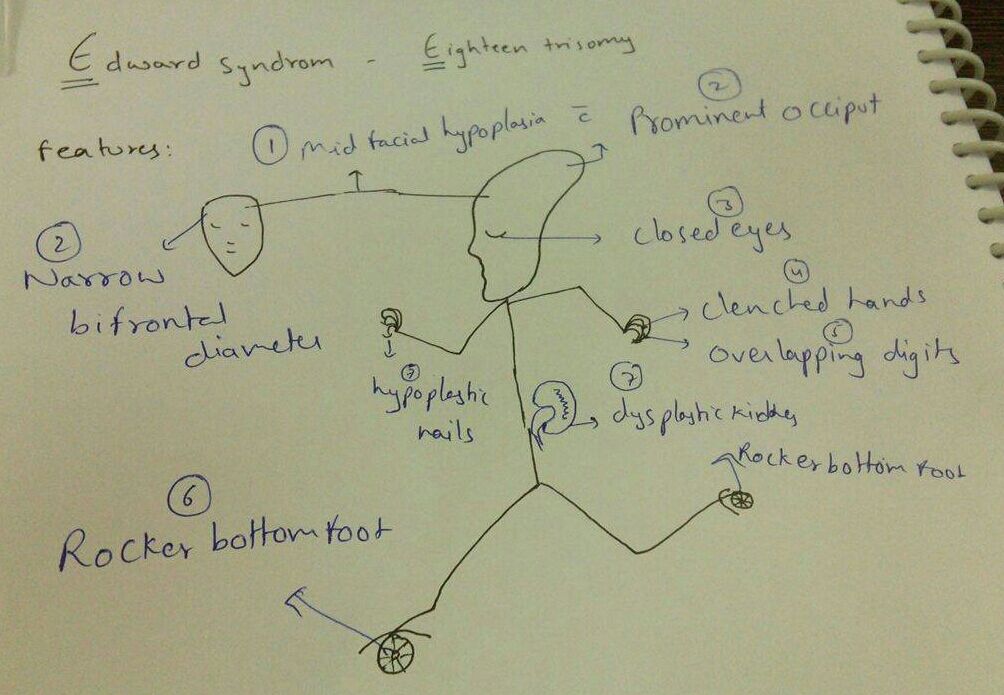 Edward syndrom - Eighteen trisomy
features:
① Mid facial hypoplasia c̄
② Prominent occiput
② Narrow
bifrontal
diameter
③ closed eyes
④ clenched hands
⑤ overlapping digits
⑤ hypoplastic
nails
⑦ dysplastic kidney
Rockerbottom foot
⑥ Rocker bottom foot